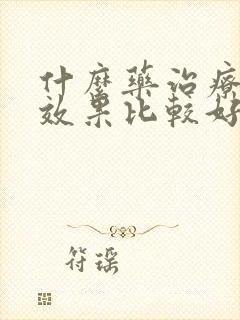 什麽藥治療
效果比較好
符瑶